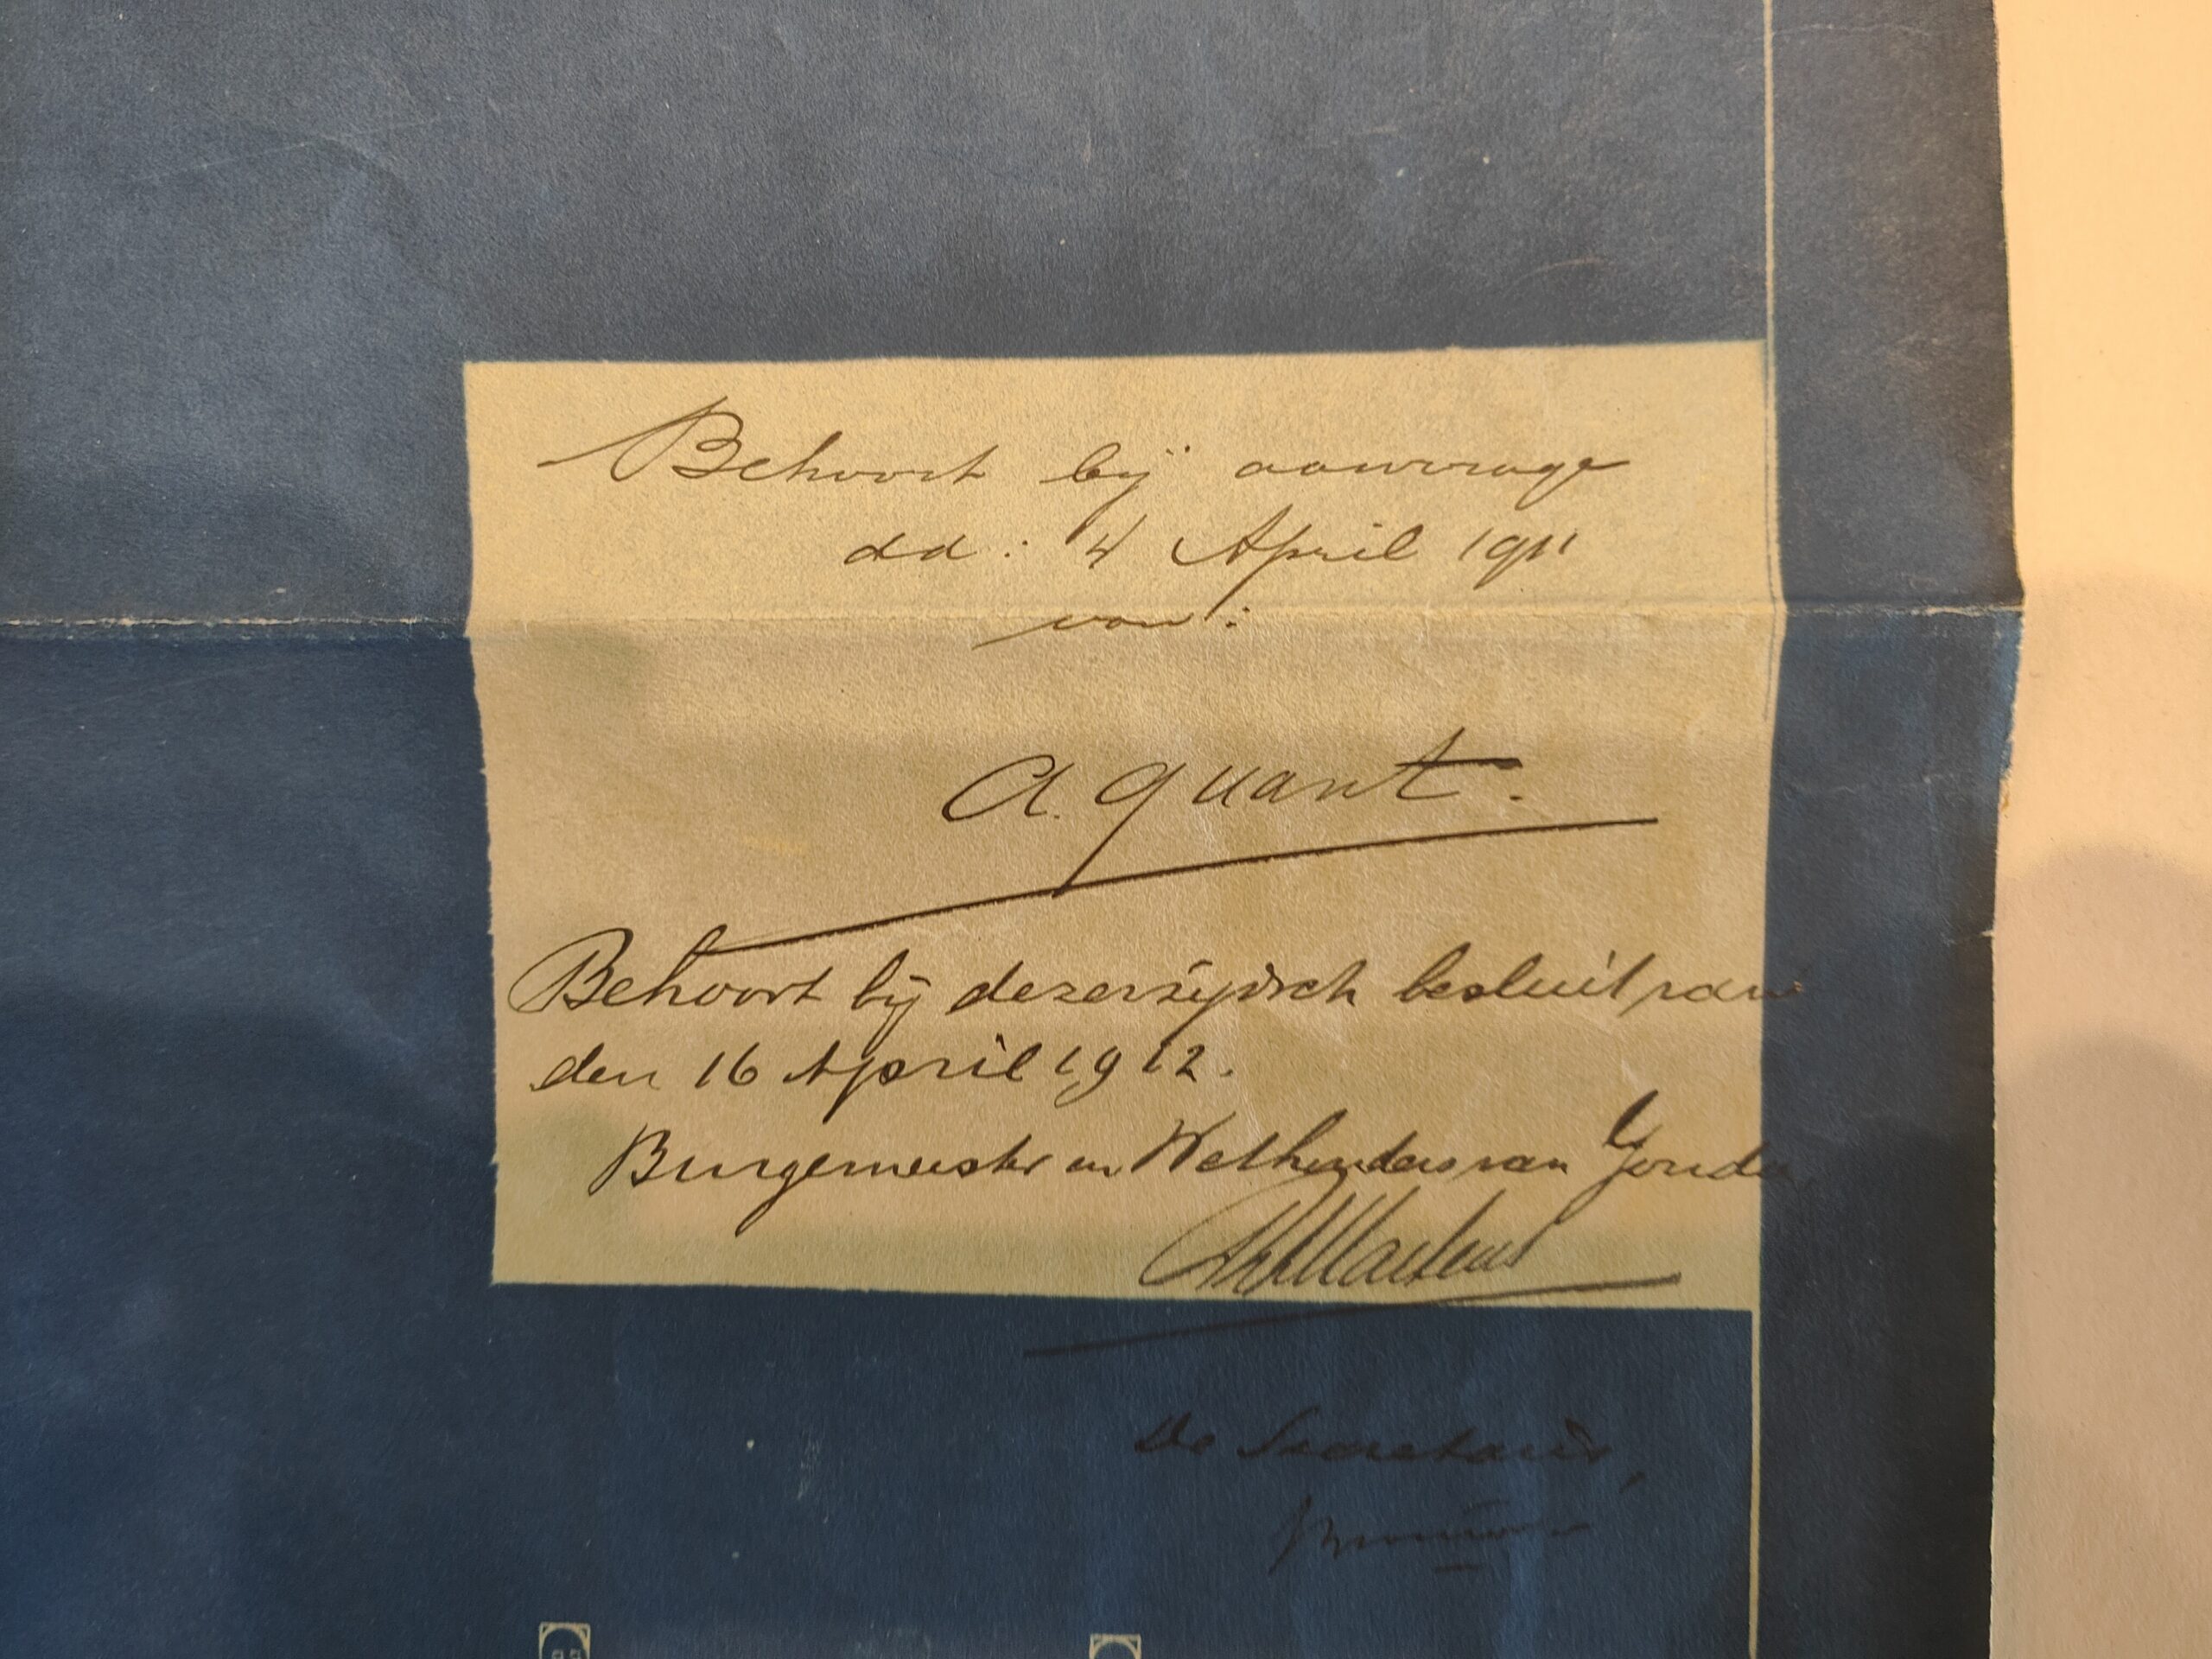 Behoort bij aanvrage
dd: 4 April 1911
van:
A. Quant.
Behoort bij dezerzijdsch besluit van
den 16 April 1912.
Burgemeester en Wethouders van Gouda,
Martens
De Secretaris,